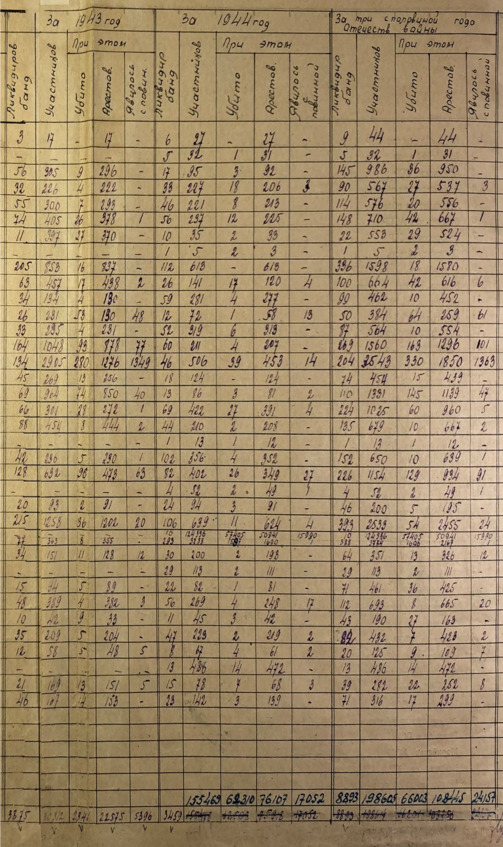 За 1943 год За 1944 год За три с половиной года
Отечеств войны
Ликвидиров банд Участников Убито При этом Арестов. Явилось с повин. Ликвидир банд Участников Убито При этом Арестов. Явилось с повинной Ликвидир. банд Участников Убито При этом Арестов. Явилось с повинной
3 17 - 17 - 6 27 - 27 - 9 44 - 44 -
- - - - - 5 32 1 31 - 5 32 1 31 -
56 305 9 296 - 17 95 3 92 - 145 986 36 950 -
32 226 4 222 - 33 227 18 206 3 90 567 27 537 3
55 300 7 293 - 46 221 8 213 - 114 576 20 556 -
74 405 26 378 1 56 237 12 225 - 148 710 42 667 1
11 397 27 370 - 10 35 2 33 - 22 553 29 524 -
- - - - - 1 5 2 3 - 1 5 2 3 -
205 853 16 837 - 112 613 - 613 - 336 1598 18 1580 -
63 457 17 438 2 26 141 17 120 4 100 664 42 616 6
34 134 4 130 - 59 281 4 277 - 99 462 10 452 -
26 231 53 130 48 12 72 1 58 13 50 384 64 259 61
33 235 4 231 - 52 319 6 313 - 87 564 10 554 -
164 1048 93 878 77 60 211 4 207 - 269 1560 163 1296 101
134 2905 280 1276 1349 46 506 39 453 14 204 3543 330 1850 1363
45 269 13 256 - 18 124 - 124 - 74 454 15 439 -
69 964 74 850 40 13 86 3 81 2 110 1331 145 1139 47
66 301 28 272 1 69 422 27 391 4 224 1025 60 960 5
88 454 8 444 2 44 210 2 208 - 135 679 10 667 2
- - - - - 1 13 1 12 - 1 13 1 12 -
42 236 5 230 1 102 356 4 352 - 152 650 10 639 1
128 632 96 473 63 82 402 26 349 27 226 1154 129 934 91
- - - - - 4 52 2 49 1 4 52 2 49 1
20 93 2 91 - 24 94 3 91 - 46 200 5 195 -
215 1258 36 1202 20 106 639 11 624 4 393 2533 54 2455 24
34 151 11 128 12 30 200 2 198 - 64 351 13 326 12
- - - - - 29 113 2 111 - 29 113 2 111 -
15 94 5 89 - 22 82 1 81 - 71 461 36 425 -
48 389 4 382 3 56 269 4 248 17 112 693 8 665 20
10 42 9 33 - 11 45 3 42 - 43 190 27 163 -
35 209 5 204 - 47 223 2 219 2 432 7 423 2
12 58 5 48 5 8 67 4 61 2 20 125 9 109 7
- - - - - 13 486 14 472 - 13 486 14 472 -
21 169 13 151 5 15 78 7 68 3 39 282 22 252 8
46 167 14 153 - 23 142 3 139 - 71 316 17 299 -
155469 62310 76107 17052 8893 198605 66003 108445 24157
3875 22575 5396 3459